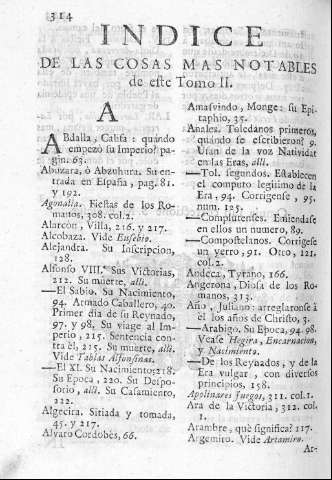 314
INDICE
DE LAS COSAS MAS NOTABLES
de este Tomo II.
A
ABdalla, Califa: quándo
empezó su Imperio? pa-
gin. 63.
Abuzara, ò Abzuhura. Su en-
trada en España, pag. 81.
y 192.
Agonalia. Fiestas de los Ro-
manos, 308. col. 2.
Alarcon, Villa, 216. y 217.
Alcobaza. Vide Eusebio.
Alejandra. Su Inscripcion,
128.
Alfonso VIII. Sus Victorias,
212. Su muerte, alli.
—El Sabio. Su Nacimiento,
94. Armado Caballero, 40.
Primer dia de su Reynado,
97. y 98. Su viage al Im-
perio, 215. Sentencia con-
tra èl, 215. Su muerte, alli.
Vide Tablas Alfonsinas.
—El XI. Su Nacimiento, 218.
Su Epoca, 220. Su Despo-
sorio, alli. Su Casamiento,
222.
Algecira. Sitiada y tomada,
45. y 217.
Alvaro Cordobès, 66.
Amasvindo, Monge: su Epi-
taphio, 35.
Anales. Toledanos primeros,
quándo se escribieron? 9.
Usan de la voz Natividat
en las Eras, alli.
—Tol. segundos. Establecen
el computo legitimo de la
Era, 94. Corrigense, 95.
num. 125.
—Complutenses. Emiendase
en ellos un numero, 89.
—Compostelanos. Corrigese
un yerro, 91. Otro, 121.
col. 2.
Andeca, Tyrano, 166.
Angerona, Diosa de los Ro-
manos, 313.
Año, Juliano: arreglaronse à
èl los años de Christo, 3.
—Arabigo. Su Epoca, 94. 98.
Vease Hegira, Encarnacion,
y Nacimiento.
—De los Reynados, y de la
Era vulgar, con diversos
principios, 158.
Apolinares Juegos, 311. col. 1.
Ara de la Victoria, 312. col.
1.
Arambre, què significa? 117.
Argemiro. Vide Artamiro.
Ar-